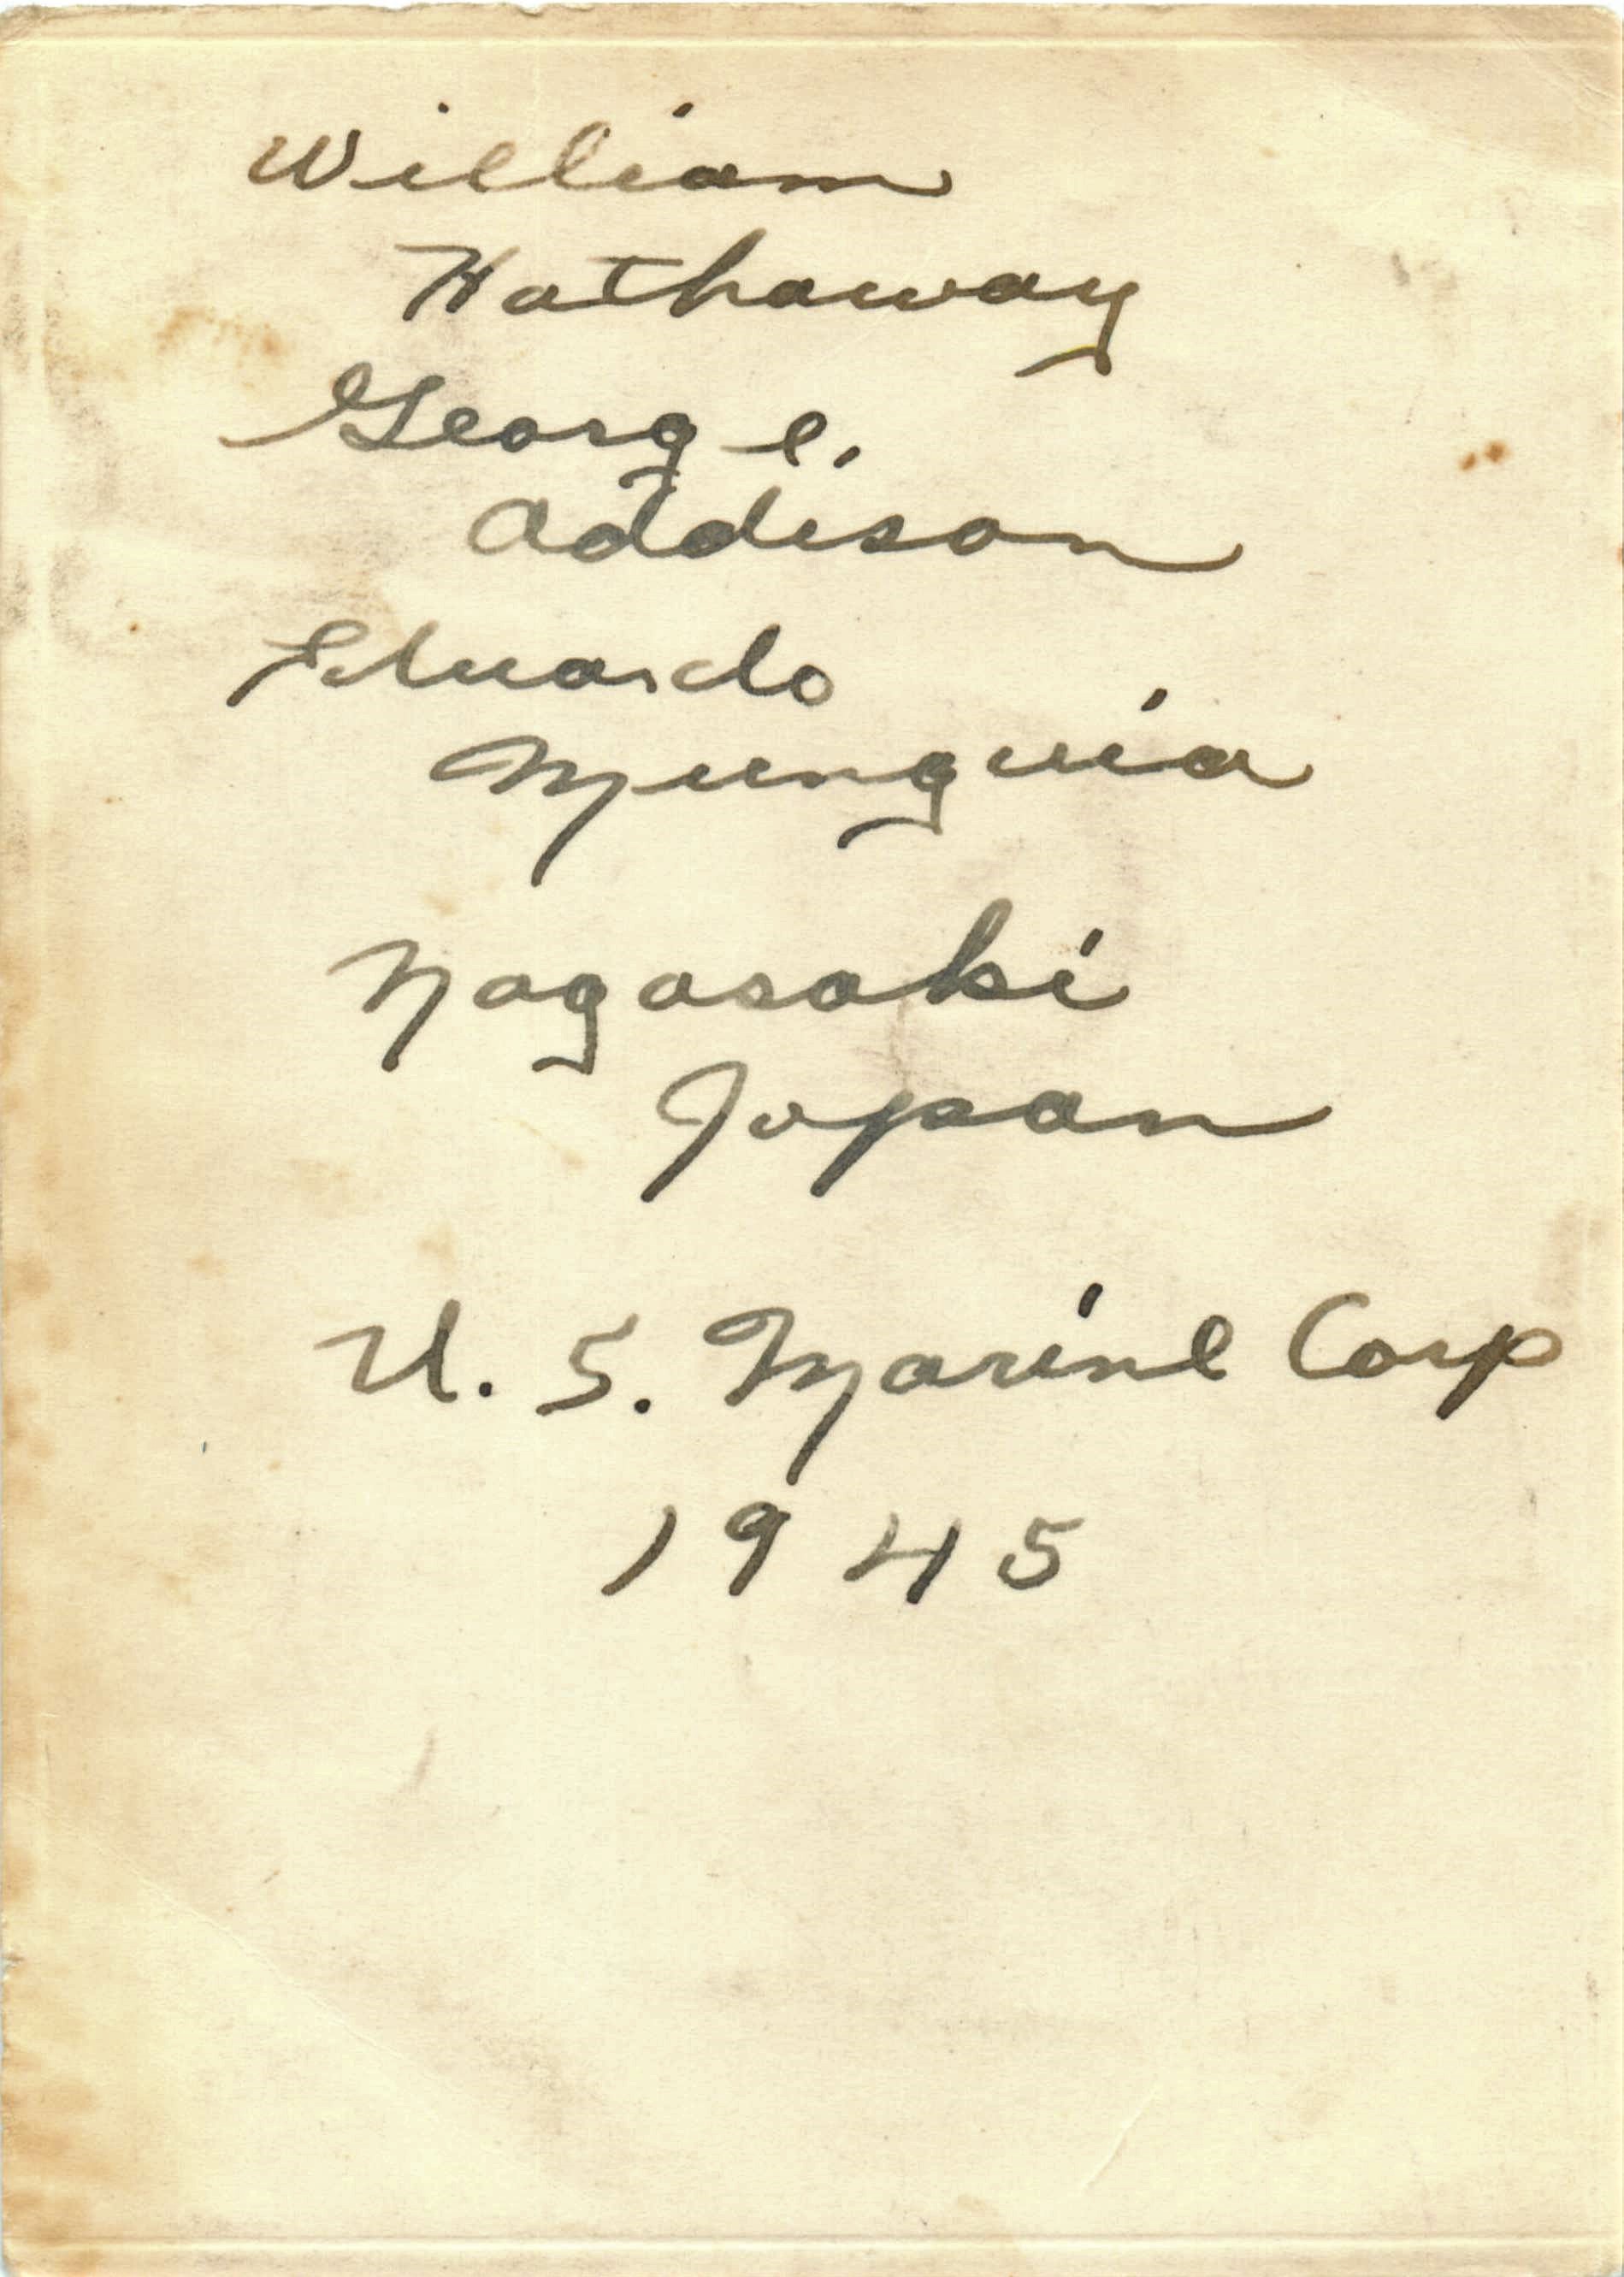 William
Hathaway
George.
Addison
Eduardo
Munguia
Nagasaki
Japan
U. S. Marine Corp
1945